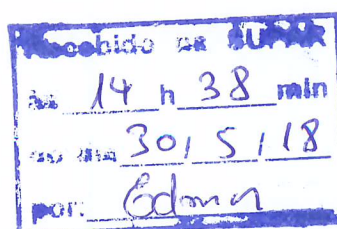 Recebido na SUPAR
às 14 h 38 min
no dia 30/5/18
por: